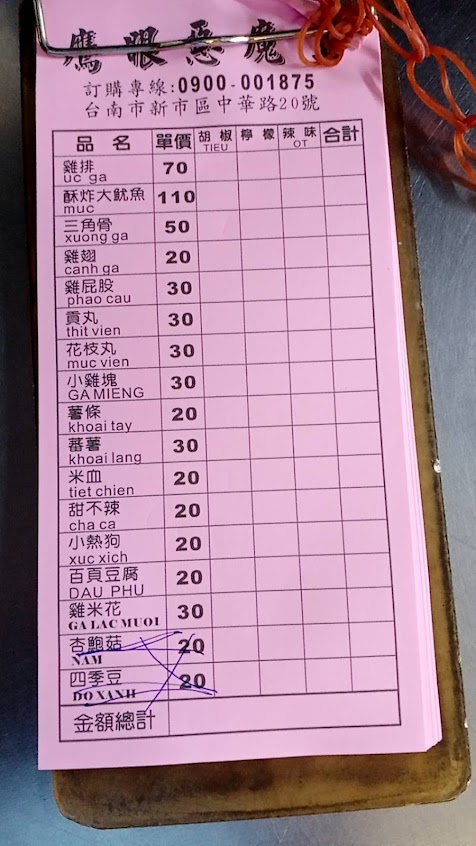 鷹眼惡魔
訂購專線:0900-001875
台南市新市區中華路20號
品名 單價 胡椒 TIEU 檸檬 辣味 OT 合計
雞排 70
uc ga
酥炸大魷魚 110
muc
三角骨 50
xuong ga
雞翅 20
canh ga
雞屁股 30
phao cau
貢丸 30
thit vien
花枝丸 30
muc vien
小雞塊 30
GA MIENG
薯條 20
khoai tay
蕃薯 30
khoai lang
米血 20
tiet chien
甜不辣 20
cha ca
小熱狗 20
xuc xich
百頁豆腐 20
DAU PHU
雞米花 30
GA LAC MUOI
杏鮑菇 20
NAM
四季豆 20
DO XANH
金額總計